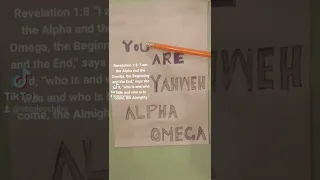 Revelation 1:8 "I am
the Alpha and the
Omega, the Beginning
and the End," says the
"who is and who
was and who is to
come, the Almighty
Revelation 1:8 I am
the Alpha and the
Omega, the Beginning
and the End," says
"who is and who
was and who is to
come, the Almighty
TikTok
YOU
ARE
YAHWEH
ALPHA
OMEGA